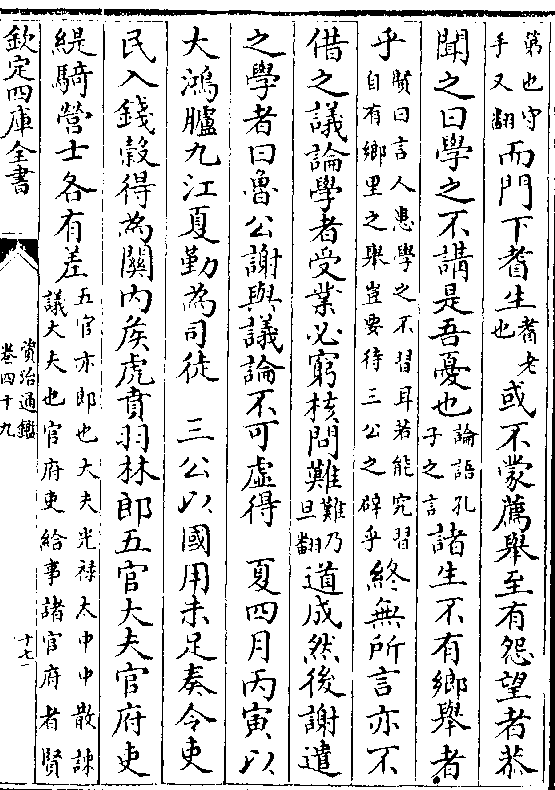 第也守手又翻而門下耆生耆老也或不蒙薦舉至有怨望者恭
聞之曰學之不講是吾憂也論語孔子之言諸生不有鄉舉者
乎賢曰言人患學之不習耳若能究習自有鄉里之舉豈要待三公之辟乎終無所言亦不
借之議論學者受業必窮核問難難乃旦翻道成然後謝遣
之學者曰魯公謝與議論不可虛得　夏四月丙寅以
大鴻臚九江夏勤為司徒　三公以國用未足奏令吏
民入錢穀得為關內侯虎賁羽林郎五官大夫官府吏
緹騎營士各有差五官亦郎也大夫光祿太中中散諫議大夫也官府吏給事諸官府者賢
欽定四庫全書
資治通鑑
卷四十九
十七